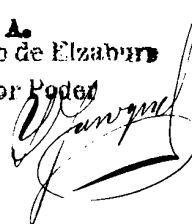 A.
o de Elzaburu
or Poder